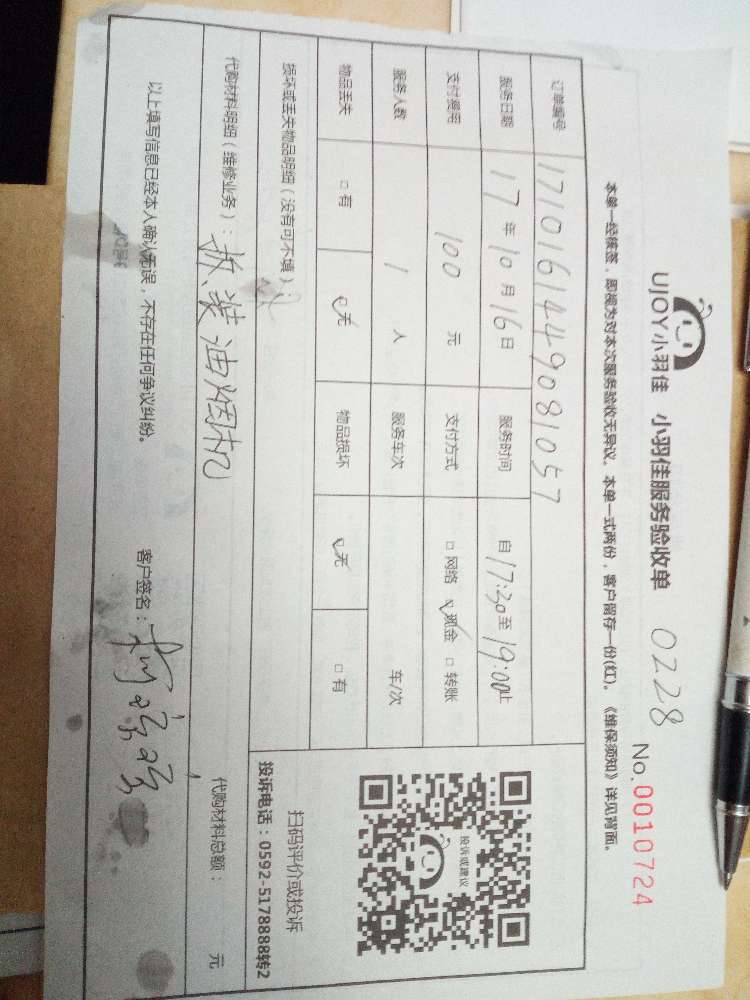 UJOY小羽佳 小羽佳服务验收单 0228
No.0010724
本单一经签签，即视为对本次服务验收无异议。本单一式两份，客户留存一份(红)。《维保须知》详见背面。
订单编号 1710161449081057
服务日期 17年10月16日 服务时间 自17:30至19:00止
支付费用 100元 支付方式 □网络 ☑现金 □转账
服务人数 1人 服务车次 车/次
物品丢失 □有 ☑无 物品损坏 ☑无 □有
损坏或丢失物品明细（没有可不填）：
代购材料明细（维修业务）：拆、装油烟机 代购材料总额： 元
投诉或建议
扫码评价或投诉
投诉电话：0592-5178888转2
以上填写信息已经本人确认无误，不存在任何争议纠纷。 客户签名：